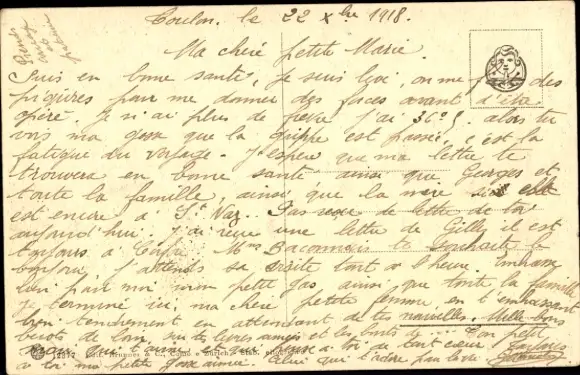 Toulon. le 22 Xbre 1918.
Ma cheré petite Marie.
Suis en bonne santé, je suis levé, on me des
piqûres pour me donner des forces avant d'être
opéré. Je n'ai plus de fièvre j'ai 36°5. alors tu
vois ma gosse que la grippe est passée, c'est la
fatigue du voyage. J'espère que ma lettre te
trouvera en bonne santé ainsi que Georges et
toute la famille, ainsi que la mère si elle
est encore à St Naz. Pas reçu de lettre de toi
aujourd'hui. J'ai reçu une lettre de il est
toujours à Mme te souhaite le
bonjour, j'attends sa visite tout à l'heure. Embrasse
bien pour moi mon petit gas, ainsi que toute la famille
je termine ici, ma chère petite femme, en t'embrassant
bien tendrement en attendant de tes nouvelles. Mille bons
de loin, sur tes lèvres et les Ton petit
qui t'aime et qui pense à toi de tout cœur
à toi ma petite gosse aimée. Celui qui t'adore pour la vie.